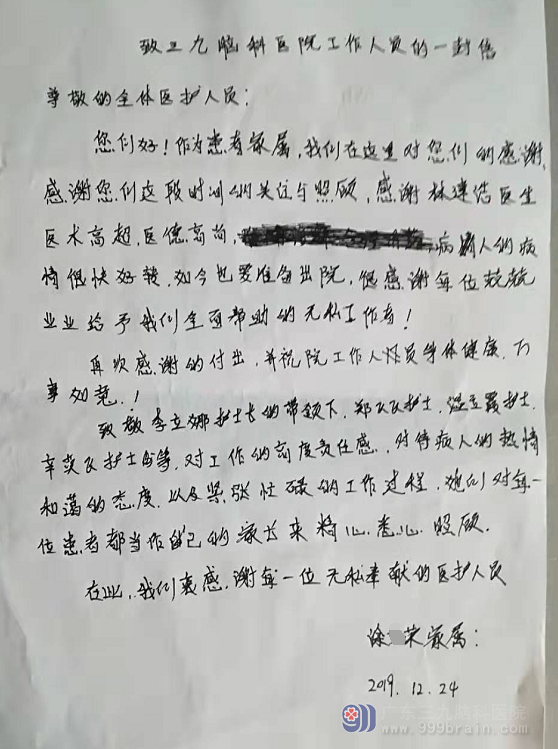 致三九脑科医院工作人员的一封信
尊敬的全体医护人员：
您们好！作为患者家属，我们在这里对您们的感谢，
感谢您们这段时间的关注与照顾，感谢林建浩医生
医术高超，医德高尚，病人的病
情很快好转，如今也要准备出院，很感谢每位兢兢
业业给予我们全面帮助的无私工作者！
再次感谢的付出，并祝院工作人员身体健康，万
事如意！
致敬李立娜护士长的带领下，护士，护士，
护士等，对工作的高度责任感，对待病人的热情
和蔼的态度，以及紧张忙碌的工作过程，她们对每一
位患者都当作自己的家长来精心、悉心照顾，
在此，我们衷感谢每一位无私奉献的医护人员
涂荣家属：
2019.12.24
广东三九脑科医院
www.999brain.com